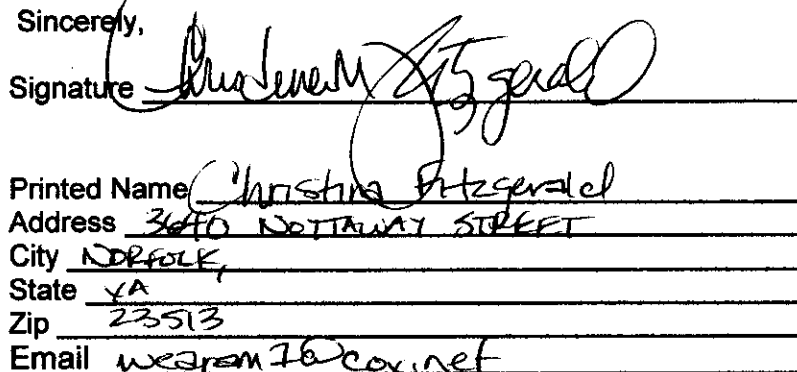 Sincerely,
Signature Christina M Fitzgerald
Printed Name Christina Fitzgerald
Address 3640 NOTTAWAY STREET
City NORFOLK,
State VA
Zip 23513
Email @cox.net